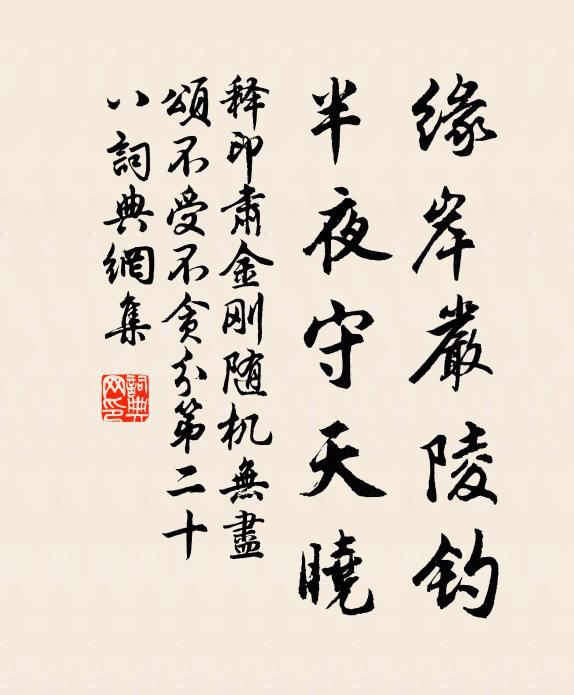 緣岸嚴陵釣
半夜守天曉
释印肃金刚随机無盡
頌不受不贪分第二十
八詞典網集
詞典
网印